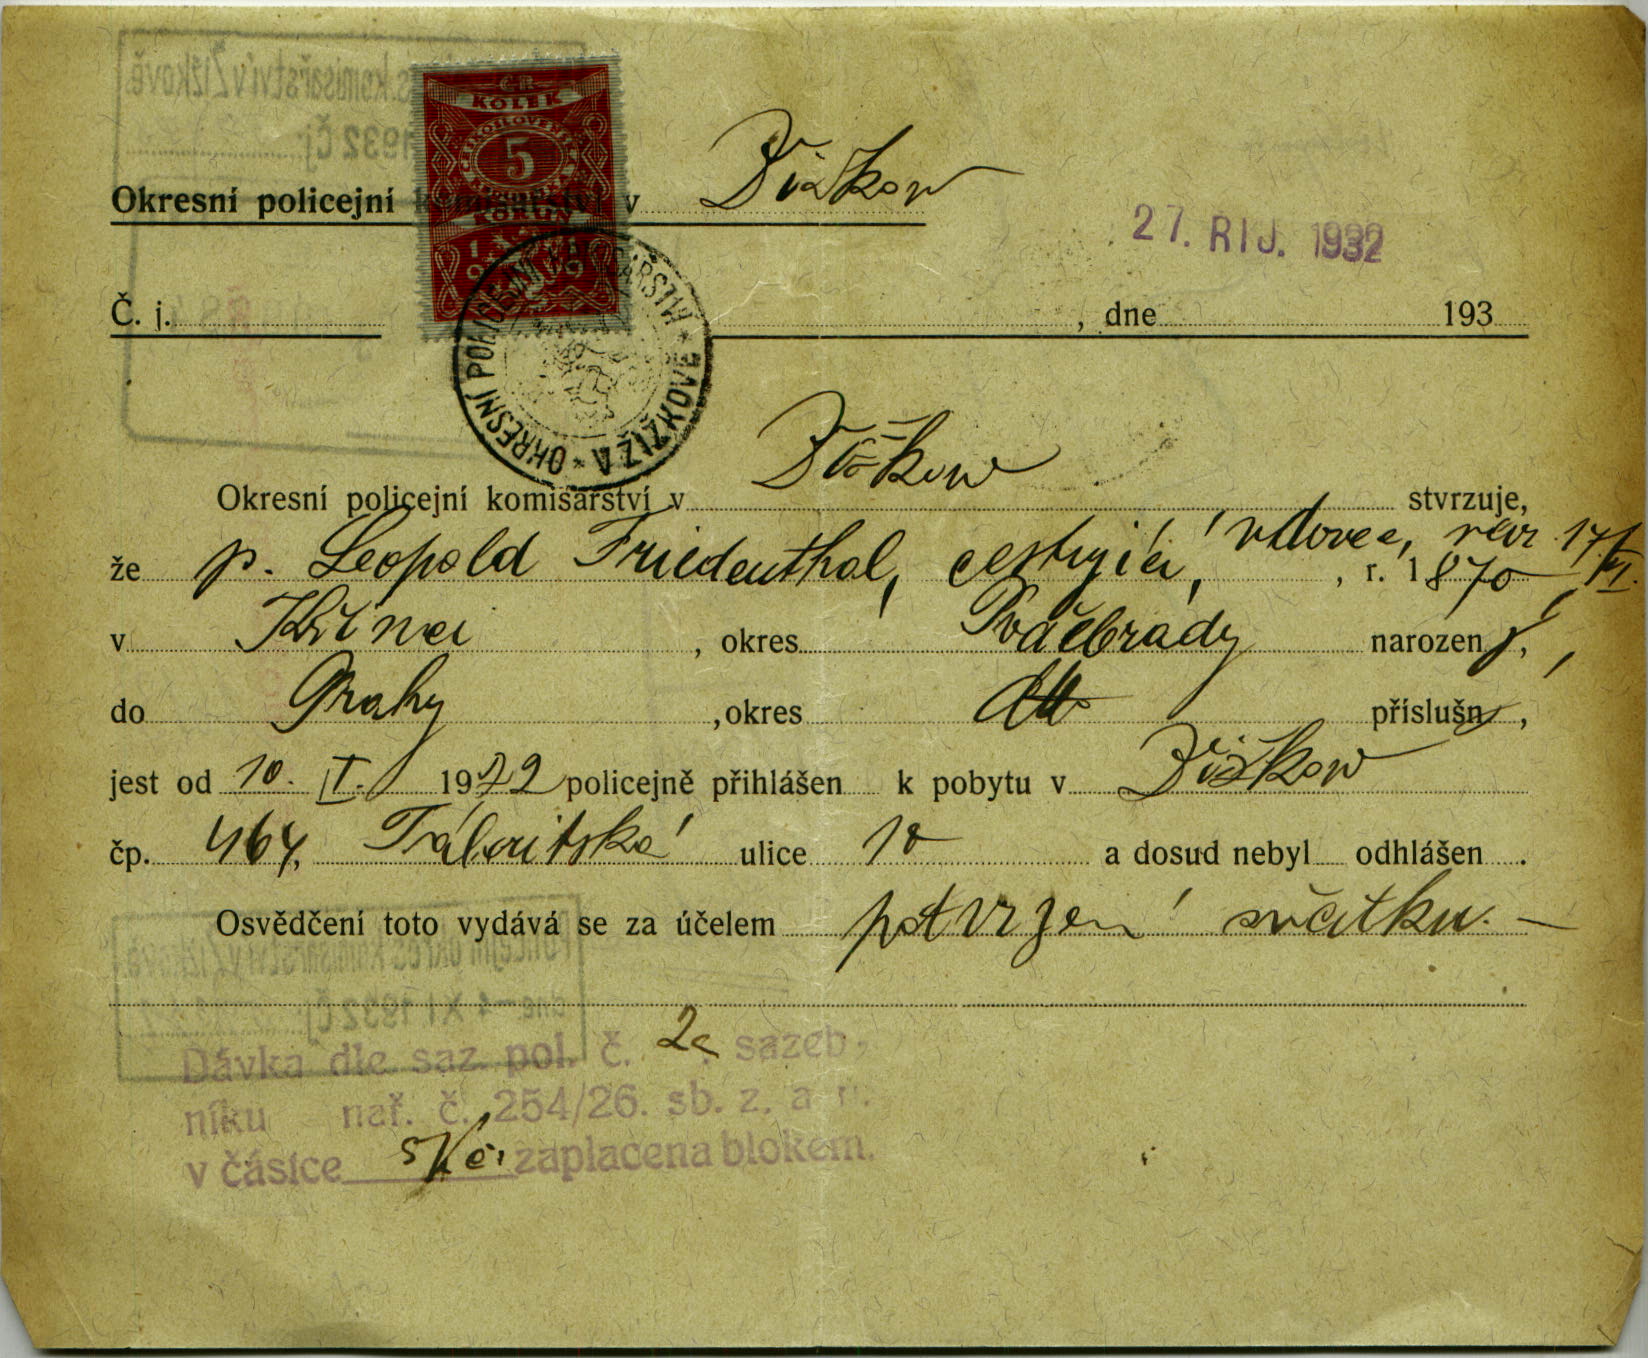 GR.
KOLEK
5
KORUN
1919
Okresní policejní komisařství v Žižkow
27. ŘÍJ. 1932
Č. j. , dne 193
OKRESNÍ POLICEJNÍ KOMISAŘSTVÍ * V ŽIŽKOVĚ *
Okresní policejní komisařství v Žižkow stvrzuje,
že p. Leopold Friedenthal, cestující, vdovec, , r. 1870
v Křinci , okres Poděbrady narozený,
do Prahy , okres dtto příslušný,
jest od 10. I. 1922 policejně přihlášen k pobytu v Žižkow
čp. 464, Táboritská ulice 10 a dosud nebyl odhlášen .
Osvědčení toto vydává se za účelem potvrzení sňatku. —
Policejní okres. komisařství v Žižkově
dne -4 XI 1932 Čj.
Dávka dle saz. pol. č. 2c sazeb,
níku nař. č. 254/26. sb. z. a n.
v částce 5 Kč zaplacena blokem.